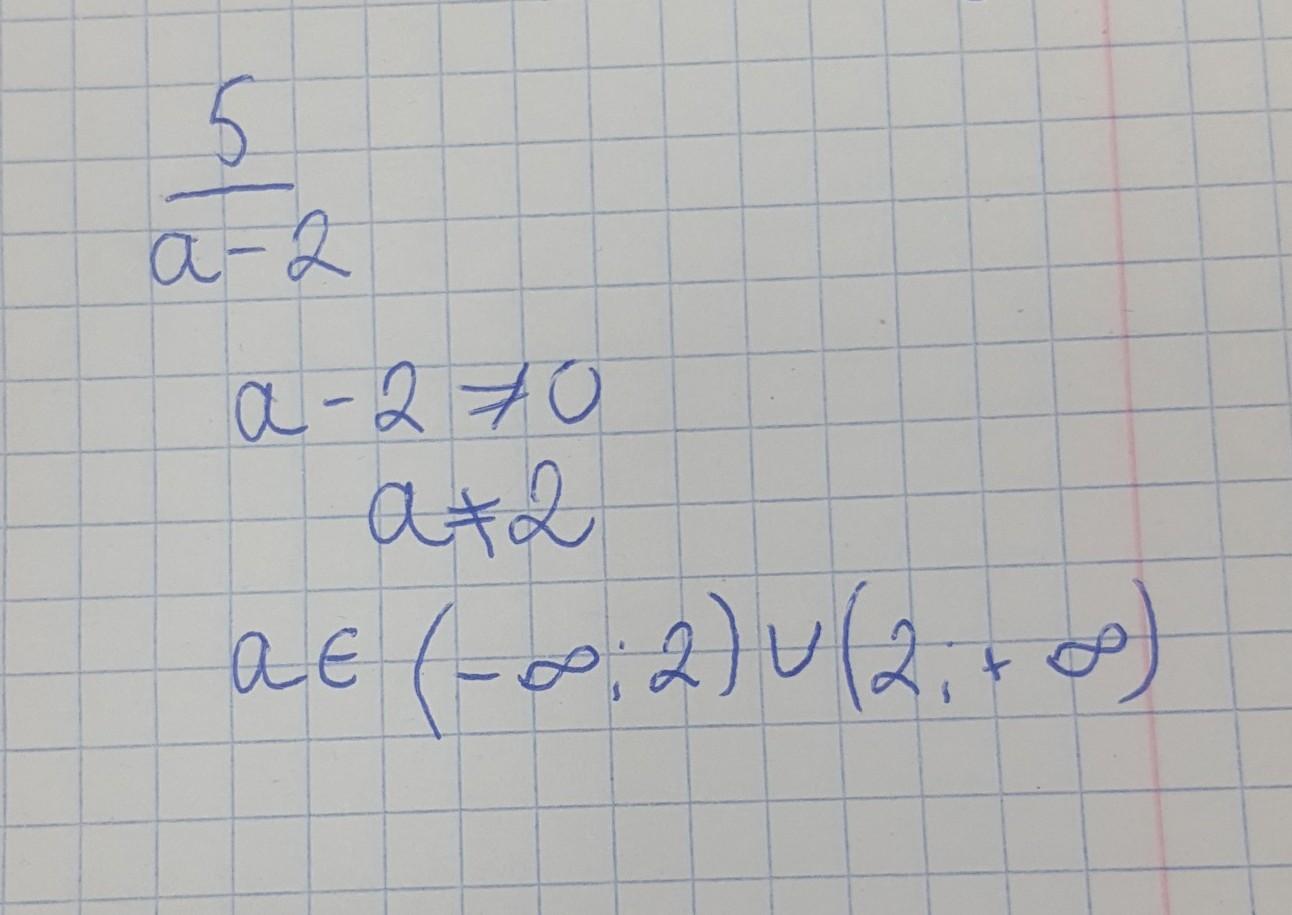 5
a-2
a-2≠0
a≠2
a∈(-∞;2)∪(2;+∞)